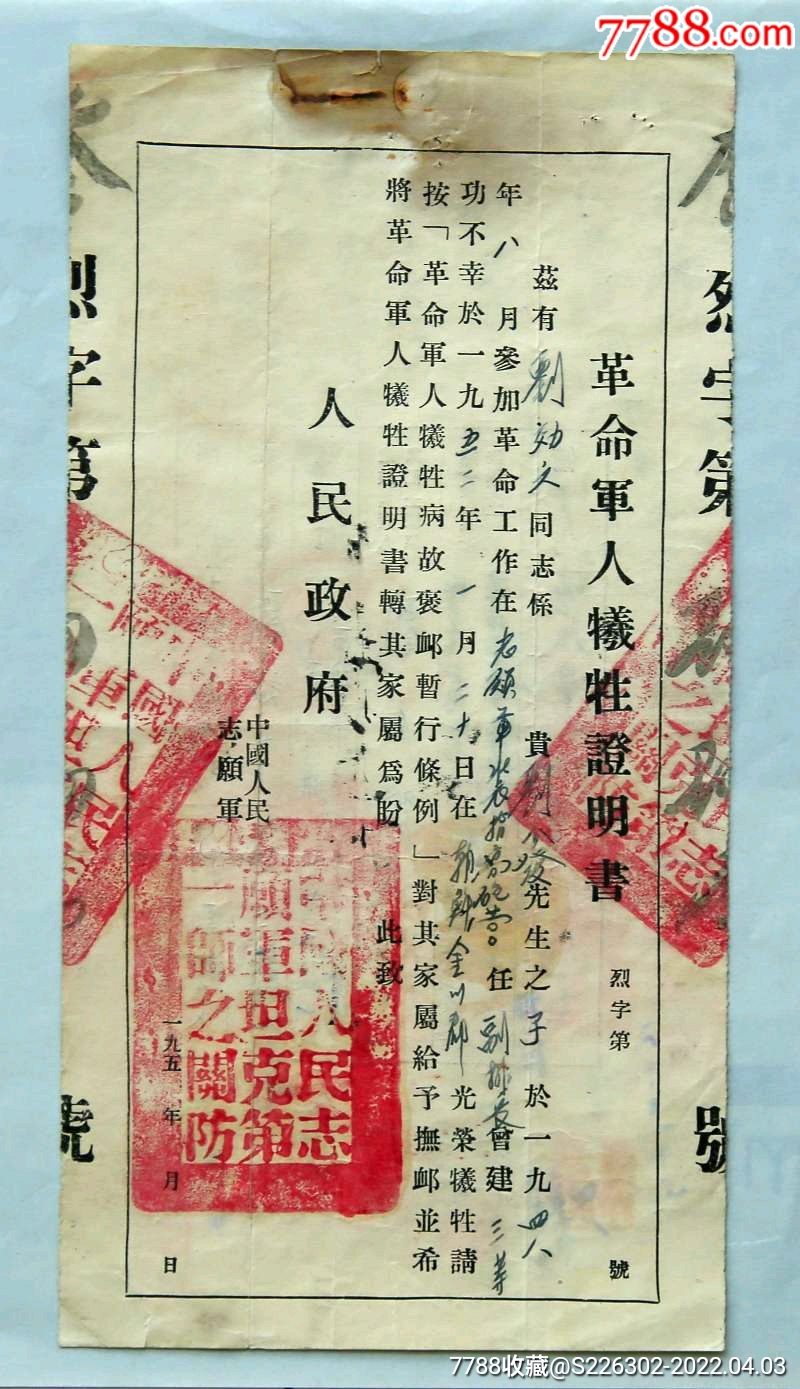 7788.com
革命軍人犧牲證明書
烈字第 號
茲有劉効文同志係 貴 劉 發先生之子於一九四八
年八月參加革命工作在志願軍裝指 砲營任副排長曾建三等
功不幸於一九五二年一月二十日在朝鮮金川郡光榮犧牲請
按「革命軍人犧牲病故褒卹暫行條例」對其家屬給予撫卹並希
將革命軍人犧牲證明書轉其家屬爲盼 此致
人民政府
中國人民
志願軍
一九五 年 月 日
中國人民志
願軍坦克第
一師之關防
烈字第 號
烈字第 號
7788收藏@S226302-2022.04.03